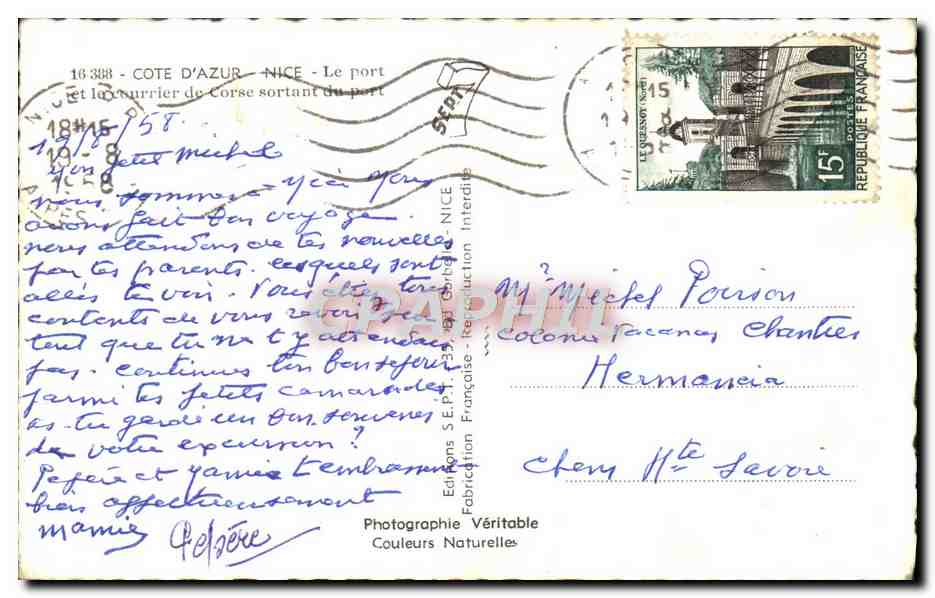 16 388 - COTE D'AZUR - NICE - Le port
et le courrier de Corse sortant du port
NICE
18H15
19 - 8
SEPT
15
LE QUESNOY (Nord)
15F
POSTES
REPUBLIQUE FRANÇAISE
19/8/58.
Mon petit Michel
nous sommes ici nous
avons fait bon voyage
nous attendons de tes nouvelles
par tes parents. lesquels sont
allés te voir. Vous étiez tous
contents de vous revoir
tant que tu ne t'y attendais
pas. Continues ton bon séjour
parmi tes petits camarades
as-tu gardé un bon souvenir
de votre excursion ?
Pépère et Mamie t'embrassent
bien affectueusement
Mamie Pépère
Editions S.E.P.T. 35, Bd Gorbella - NICE
Fabrication Française - Reproduction Interdite
CPAPHIL
Mr Michel Poirson
Colonie Vacances Chantiers
Hermancia
Chens Hte Savoie
Photographie Véritable
Couleurs Naturelles